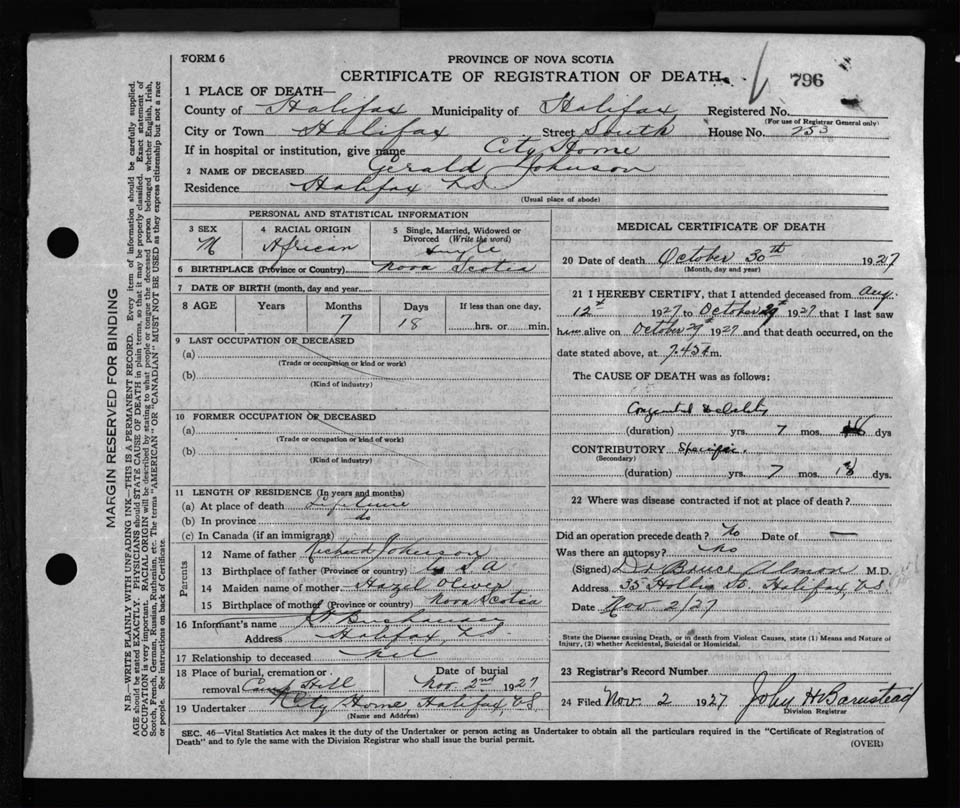 FORM 6
PROVINCE OF NOVA SCOTIA
CERTIFICATE OF REGISTRATION OF DEATH
796
1 PLACE OF DEATH—
County of Halifax Municipality of Halifax Registered No.
(For use of Registrar General only)
City or Town Halifax Street South House No. 253
If in hospital or institution, give name City Home
2 NAME OF DECEASED Gerald Johnson
Residence Halifax N.S.
(Usual place of abode)
PERSONAL AND STATISTICAL INFORMATION
3 SEX
M
4 RACIAL ORIGIN
African
5 Single, Married, Widowed or
Divorced (Write the word)
Single
6 BIRTHPLACE (Province or Country) Nova Scotia
7 DATE OF BIRTH (month, day and year)
8 AGE Years Months Days If less than one day,
7 18 hrs. or min.
9 LAST OCCUPATION OF DECEASED
(a)
(Trade or occupation or kind or work)
(b)
(Kind of industry)
10 FORMER OCCUPATION OF DECEASED
(a)
(Trade or occupation or kind of work)
(b)
(Kind of industry)
11 LENGTH OF RESIDENCE (In years and months)
(a) At place of death Lifetime
(b) In province do
(c) In Canada (if an immigrant)
Parents
12 Name of father Richard Johnson
13 Birthplace of father (Province or country) U S A
14 Maiden name of mother Hazel Oliver
15 Birthplace of mother (Province or country) Nova Scotia
16 Informant's name
Address Halifax, N.S
17 Relationship to deceased Nil
18 Place of burial, cremation or Date of burial
removal Camp Hill Nov 2nd 1927
19 Undertaker City Home, Halifax, N.S.
(Name and Address)
MEDICAL CERTIFICATE OF DEATH
20 Date of death October 30th 1927
(Month, day and year)
21 I HEREBY CERTIFY, that I attended deceased from Aug.
12th 1927 to October 29 1927 that I last saw
him alive on October 29th 1927 and that death occurred, on the
date stated above, at 7.45 m.
The CAUSE OF DEATH was as follows:
Congenital Debility
(duration) yrs. 7 mos. 18 dys
CONTRIBUTORY Specific.
(Secondary)
(duration) yrs. 7 mos. 18 dys.
22 Where was disease contracted if not at place of death?
Did an operation precede death? No Date of —
Was there an autopsy? No
(Signed) Bruce Almon M.D.
Address 35 Hollis St. Halifax, N.S
Date Nov 2/27
State the Disease causing Death, or in death from Violent Causes, state (1) Means and Nature of
Injury, (2) whether Accidental, Suicidal or Homicidal.
23 Registrar's Record Number
24 Filed Nov. 2 1927 John H Barnstead
Division Registrar
SEC. 46—Vital Statistics Act makes it the duty of the Undertaker or person acting as Undertaker to obtain all the particulars required in the "Certificate of Registration of
Death" and to fyle the same with the Division Registrar who shall issue the burial permit.
(OVER)
MARGIN RESERVED FOR BINDING
N.B.—WRITE PLAINLY WITH UNFADING INK—THIS IS A PERMANENT RECORD. Every item of information should be carefully supplied.
AGE should be stated EXACTLY. PHYSICIANS should STATE CAUSE OF DEATH in plain terms, so that it may be properly classified. Exact statement of
OCCUPATION is very important. RACIAL ORIGIN will be described by stating to what people or tongue the deceased person belonged whether English, Irish,
Scotch, French, German, Russian, Ruthenian, etc. The terms "AMERICAN" OR "CANADIAN" MUST NOT BE USED as they express citizenship but not a race
or people. See instructions on back of Certificate.